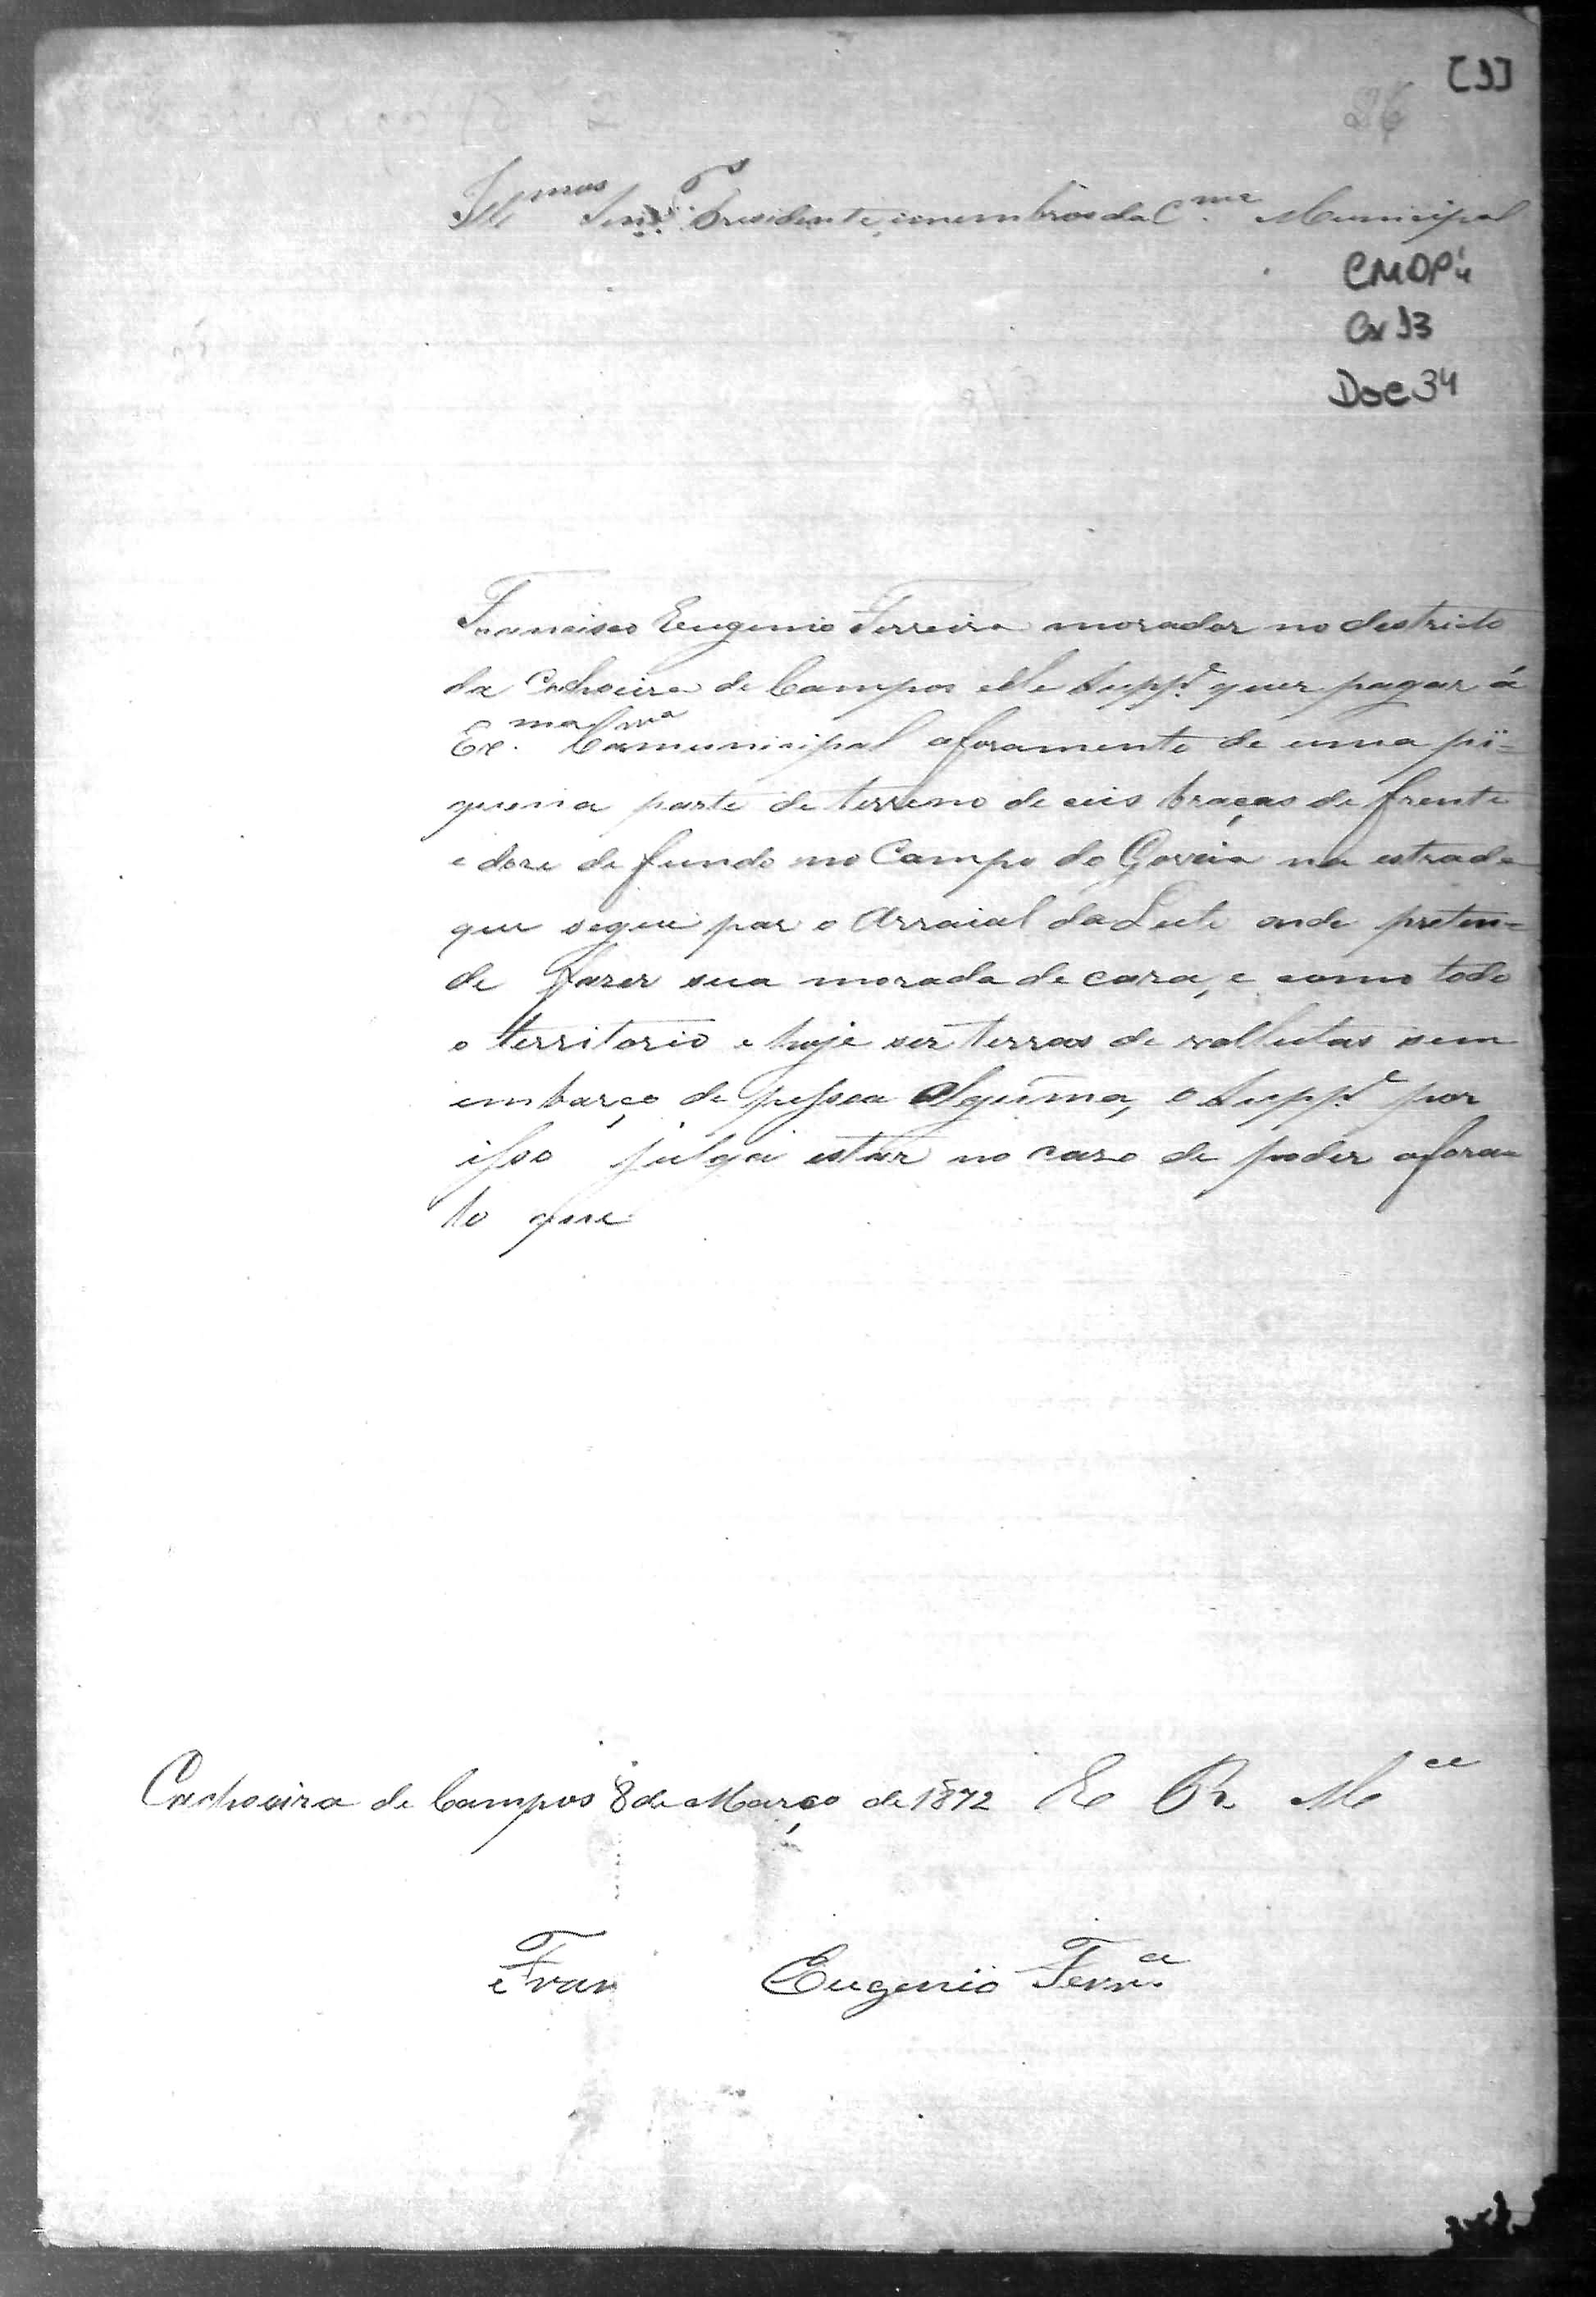 [1]
26
Ill.mos Senrs. Presidente, e membros da C.mra Municipal
CMOP 4
Cx 13
Doc 34
Francisco Eugenio Ferreira morador no destricto
da Cachoeira de Campos elle Supp.e quer pagar á
Ex.ma Camra municipal aforamento de uma pi=
quena parte de terreno de ceis braças de frente
e doze de fundo no Campo do na estrada
que segue par o Arraial do Leite onde preten=
de fazer sua morada de caza, e como todo
o territorio e hoje ser terras de vollutas sem
embarço de pessoa alguma, o Supp.e por
isso julga estar no cazo de poder afora=
to que
Cachoeira de Campos 8 de Março de 1872 E R Mce
Fran Eugenio Ferr.a